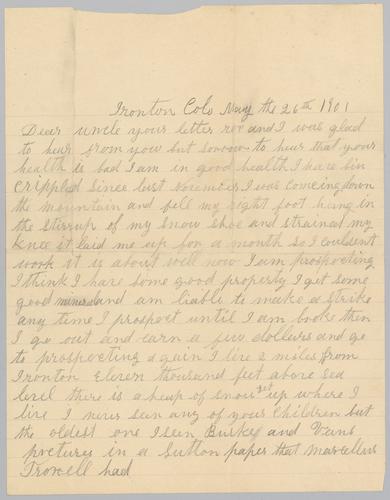 Ironton Colo May the 26th 1901
Dear uncle your letter rec and I was glad
to hear from you but sorrow to hear that your
health is bad I am in good health I have bin
crippled since last November I was comeing down
the mountain and fell my right foot hung in
the stirrup of my snow shoe and strained my
Knee it laid me up for a month so I couldent
work it is about well now I am prospecting
I think I have some good property I get some
good mineral and am liable to make a strike
any time I prospect until I am broke then
I go out and earn a few dollars and go
to prospecting again I live 2 miles from
Ironton Eleven thousand feet above sea
level there is a heap of snow yet up where I
live I never seen any of your children but
the oldest one I seen Burke and Vans
pictures in a Sutton paper that Marcellus
Trowell had